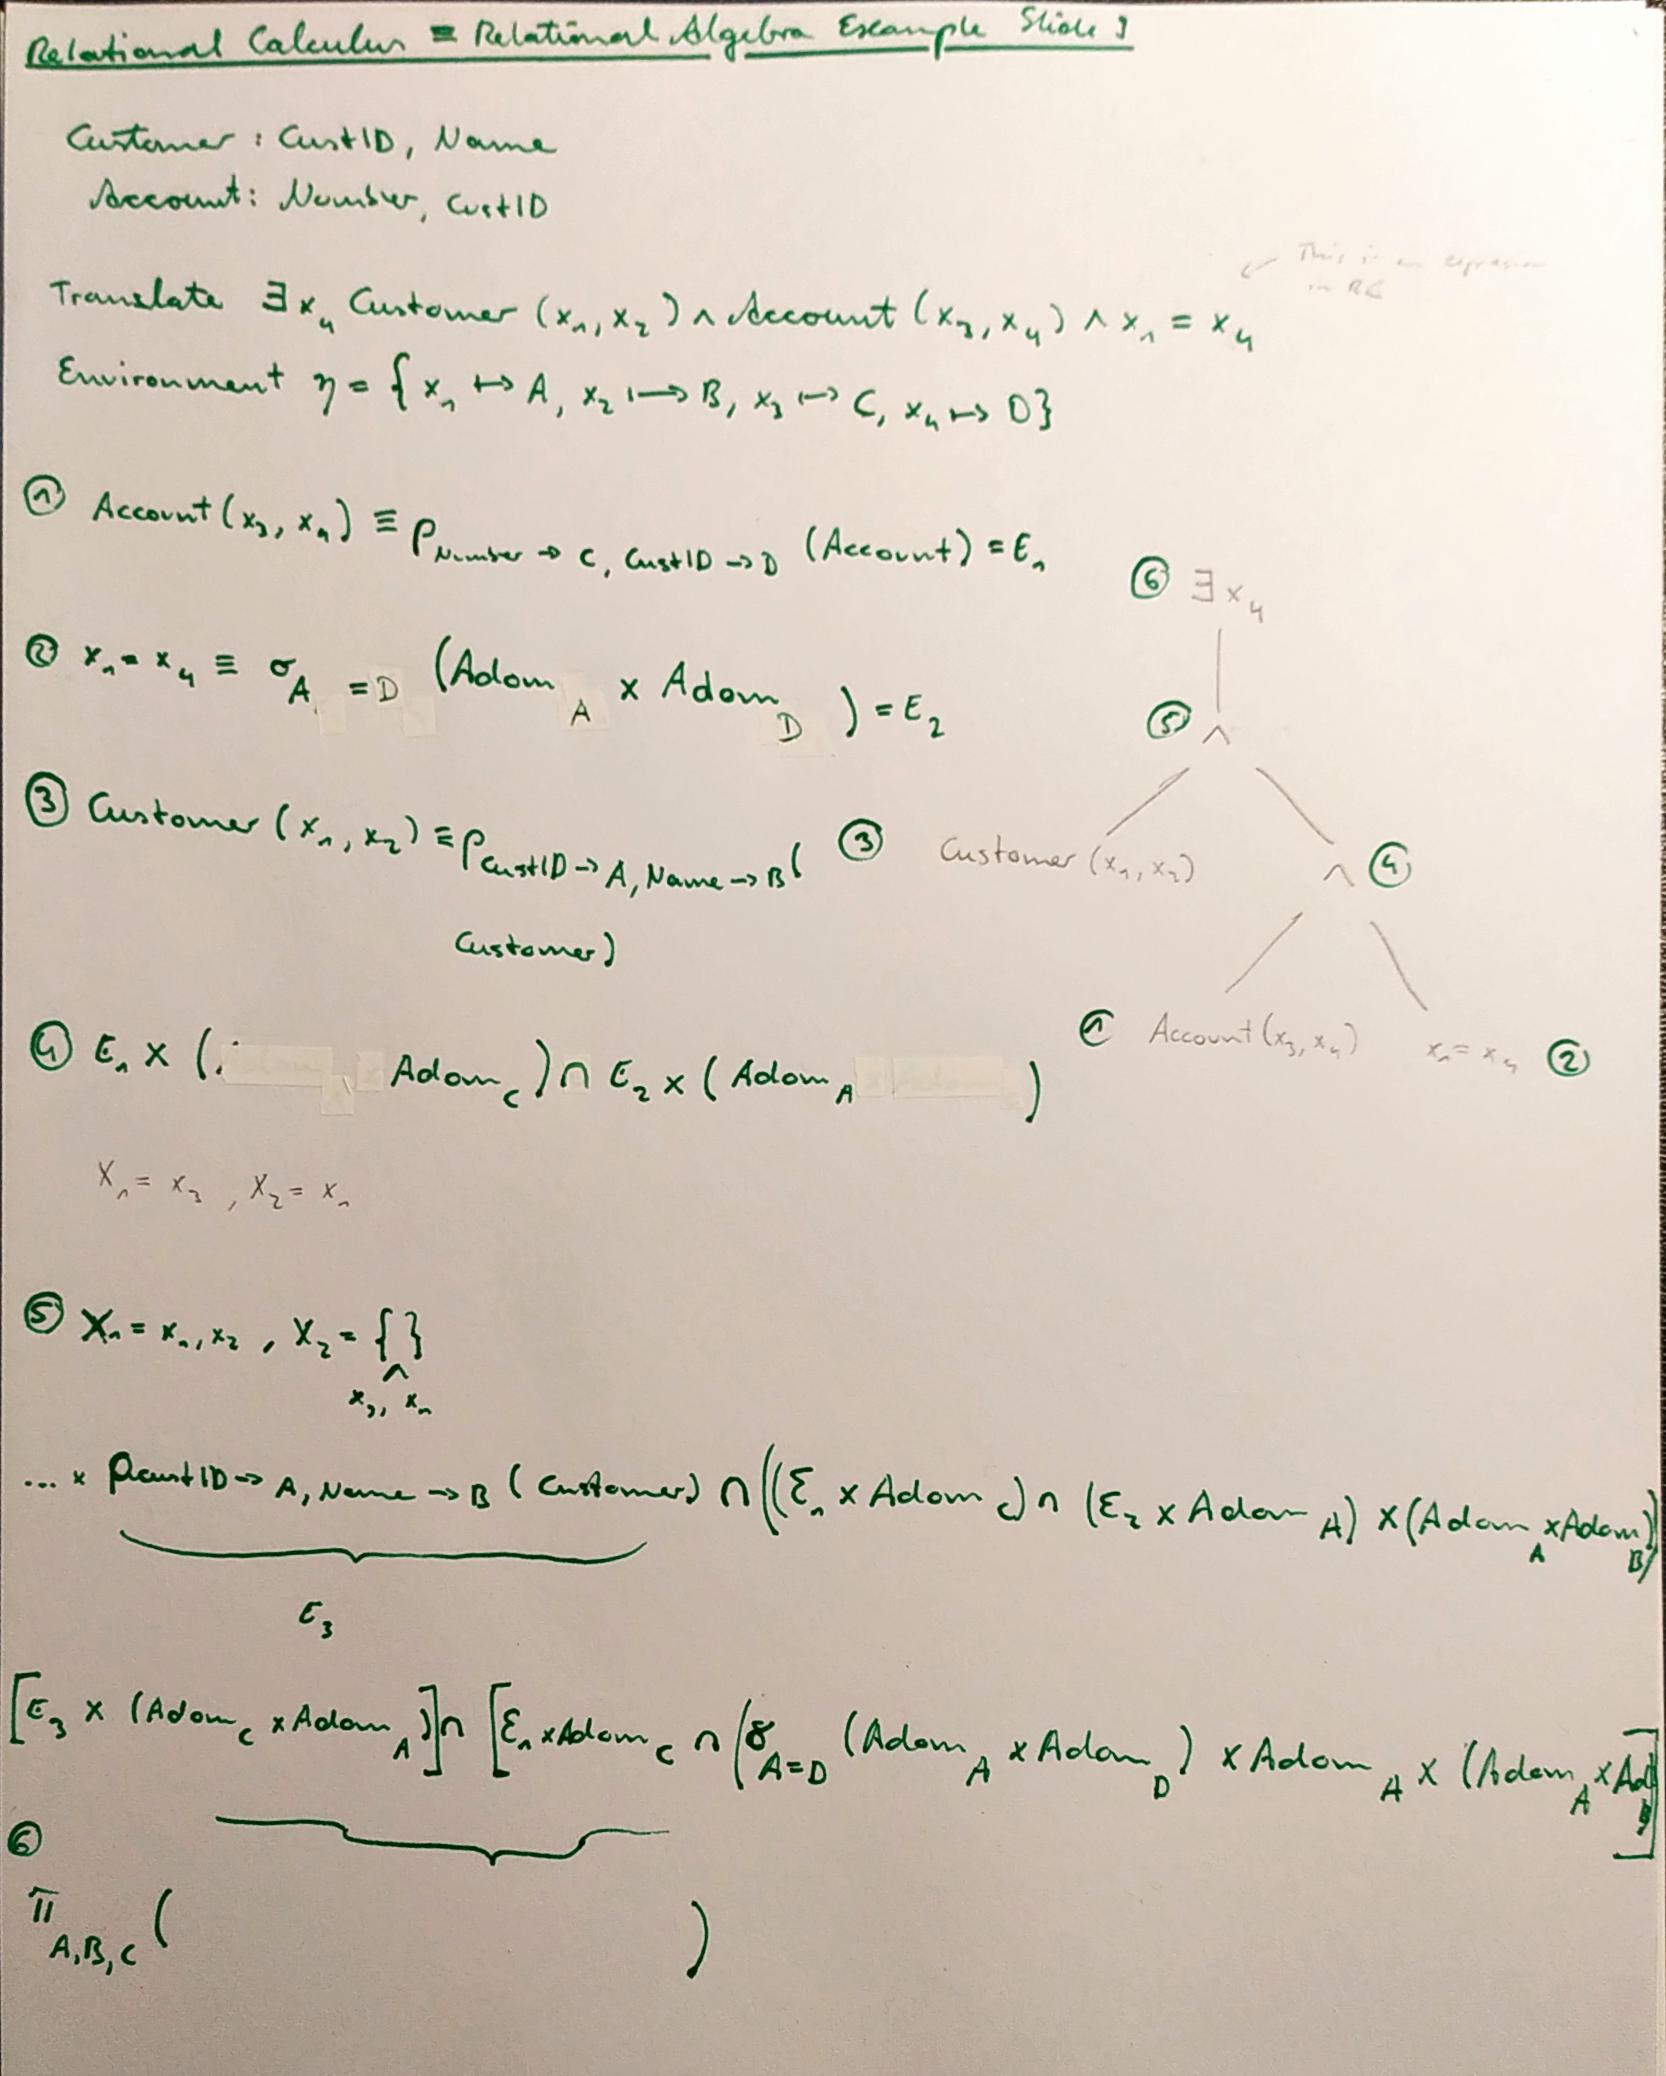 Relational Calculus ≡ Relational Algebra Example Slide 9
Customer : CustID, Name
Account: Number, CustID
This is an expression
in RC
Translate ∃x₄ Customer (x₁, x₂) ∧ Account (x₃, x₄) ∧ x₁ = x₄
Environment η = {x₁ ↦ A, x₂ ↦ B, x₃ ↦ C, x₄ ↦ D}
① Account (x₃, x₄) ≡ ρ Number → C, CustID → D (Account) = E₁
⑥ ∃x₄
② x₁ = x₄ ≡ σ A = D (Adom A × Adom D ) = E₂
⑤ ∧
③ Customer (x₁, x₂) ≡ ρ CustID → A, Name → B (
Customer)
③ Customer (x₁, x₂)
∧ ④
④ E₁ × ( Adom C ) ∩ E₂ × ( Adom A )
① Account (x₃, x₄) x₁ = x₄ ②
X₁ = x₃ , X₂ = x₁
⑤ X₁ = x₁, x₂ , X₂ = { }
^
x₃, x₁
... × ρ CustID → A, Name → B ( Customer ) ∩ ((E₁ × Adom C) ∩ (E₂ × Adom A) × (Adom A × Adom B)
E₃
[E₃ × (Adom C × Adom A)] ∩ [E₁ × Adom C ∩ (σ A=D (Adom A × Adom D) × Adom A × (Adom A × Ad B]
⑥
π A,B,C ( )